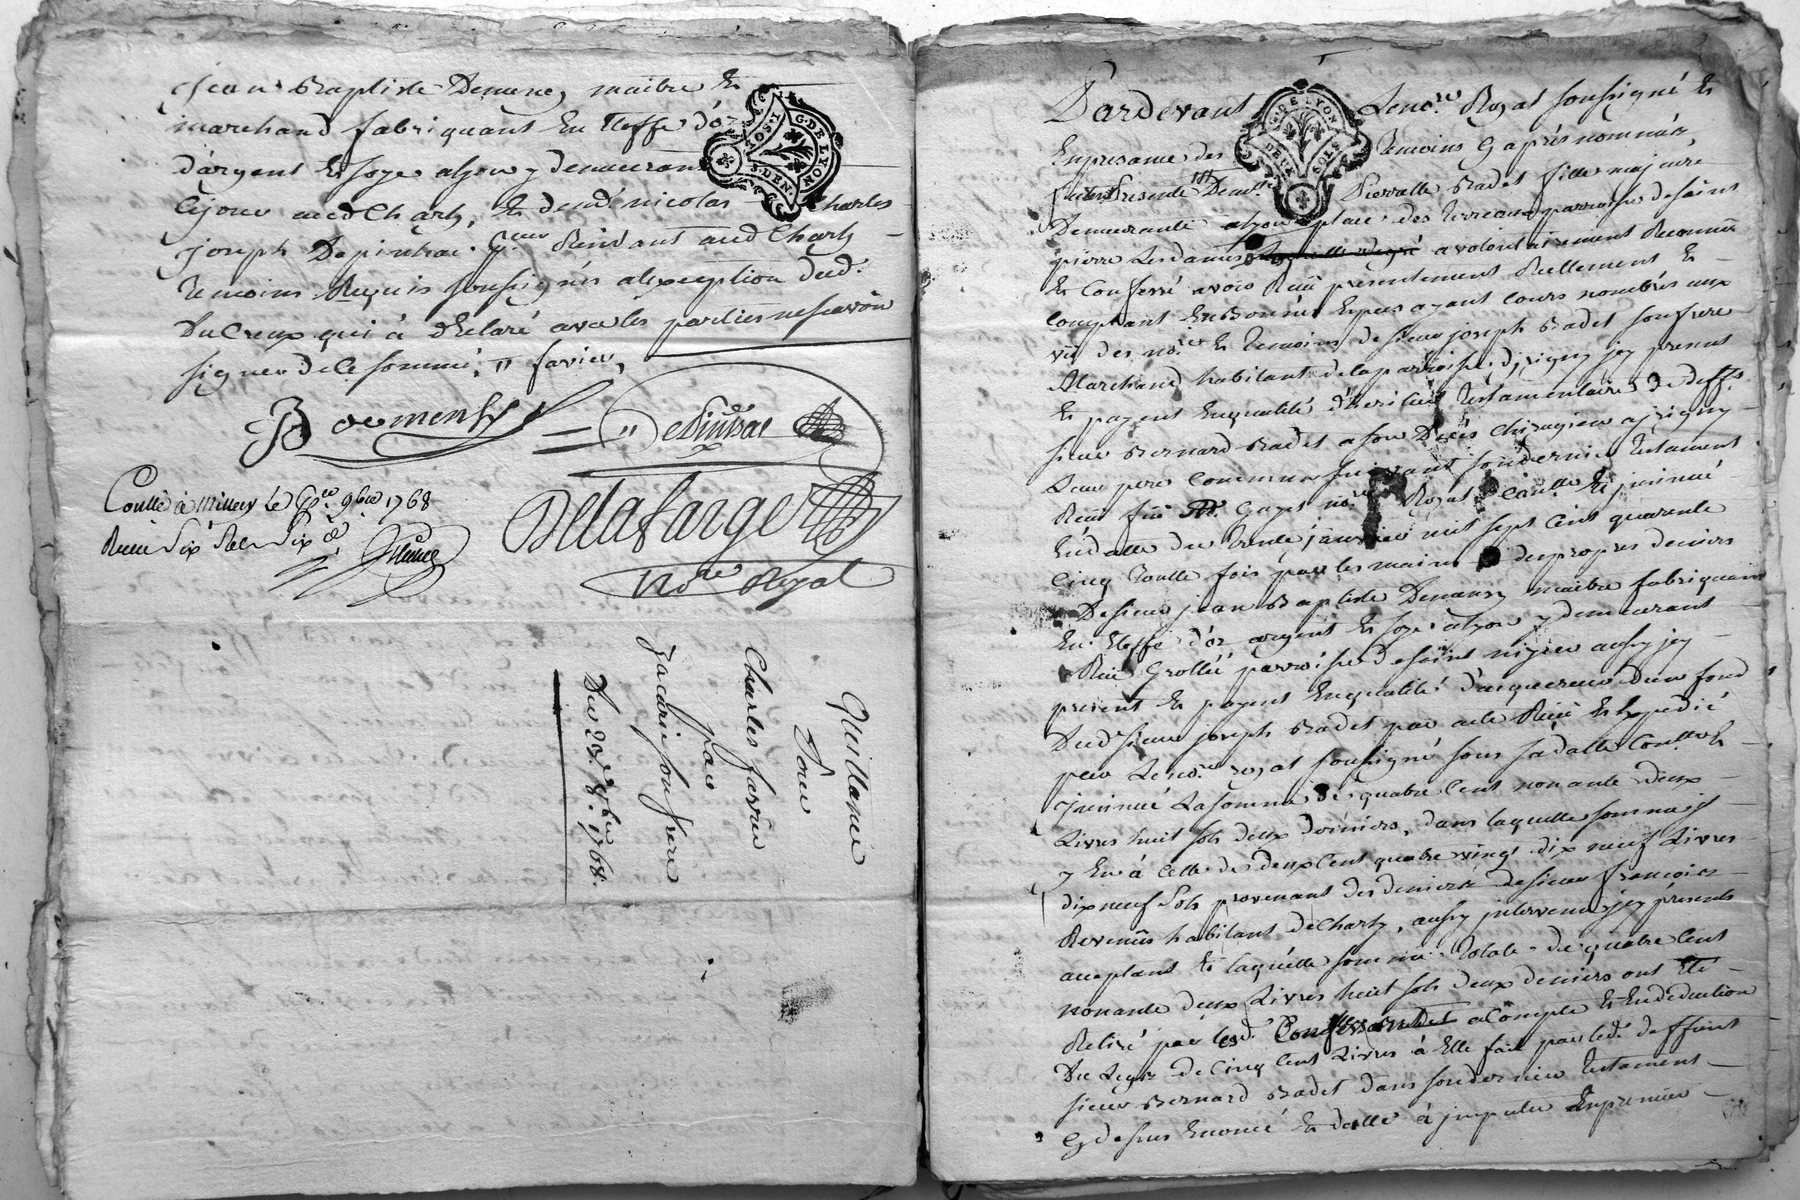 jean Baptiste Demene, maitre et
marchand fabriquant En Etoffe d'or
d'argent et soye a lyon y demeurant
Ce jour aud Charly, et de nicolas Charles
joseph Depintrac residant aud Charly
temoins Requis soussignés a lexception dud.
Du Creux qui à declaré avec les parties ne savoir
signer de ce sommé, " favier,
Documents
DePintrac
Delafarge
No.re Royal
Conllé à Millery Le 9bre 1768
Receu Six sols Six d.
G. DE LYON
SOLS
DEN.
Quittance
Pour
Charles favier
par
Zacarie son frere
Du 23. 8bre. 1768.
Pardevant Le no.re Royal soussigné et
En presance des Temoins cy après nommés
fut Presente Dem.lle Pierrette Badet fille majeure
Demeurante a lyon place des terreaux parroisse de saint
pierre a volontairement Reconnu
et Confessé avoir Receu presentement Reellement et
Comptant En Bonnes Especes ayant Cours nombrées aux
vüe des no.re et Temoins de sieur joseph Badet son frere
Marchand habitant de la parroisse d'irigny jcy present
et payant En qualité d'heritier Testamentaire de deff.t
sieur Bernard Badet a son Deces Chirurgien a jrigny
Leur pere Commun suivant son dernier Testament
Receu par M. Gayet no.re Royal
En datte du trente janvier mil sept Cent quarante
Cinq Toutte fois par les mains et des propres deniers
De sieur jean Baptiste Demeure maitre fabriquant
En Etoffe d'or argent et soye a lyon y demeurant
Rüe Grollée parroisse de saint nizier aussy jcy
present et payant En qualité d'acquereur d'un fond
Dud sieur joseph Badet par acte Receu et Expedié
par Le no.re royal soussigné sous sa datte Conllé et
jnsinué La somme de quatre Cent nonante deux
Livres huit sols deux deniers, dans laquelle somme jl
y En à Celle de deux Cent quatre vingt dix neuf Livres
dix neuf sols provenant des deniers de sieur françois
Revenüs habitant De Charly, aussy jntervenu jcy present
acceptant et laquelle somme totale de quatre Cent
nonante deux Livres huit sols deux deniers ont été
Retiré par lad. Confessante a Compte et En deduction
Du Legs de Cinq Cent Livres à Elle fait par led. deffunt
sieur Bernard Badet dans son dernier Testament
Cy dessus Enoncé et datté à jmputer En premier
G. DE LYON
DEUX SOLS